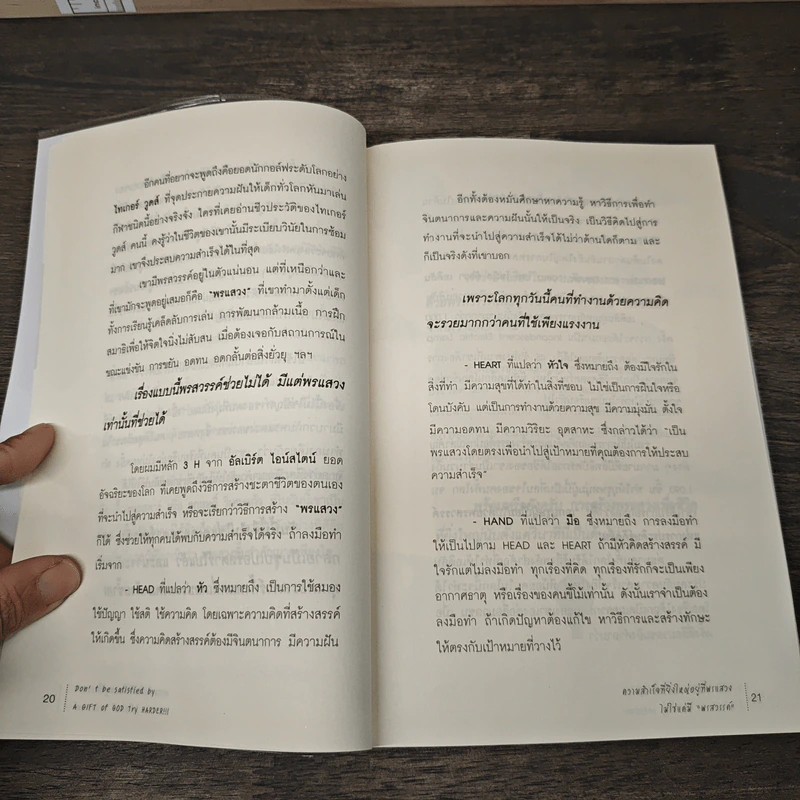 อีกคนที่อยากจะพูดถึงคือยอดนักกอล์ฟระดับโลกอย่าง
ไทเกอร์ วูดส์ ที่จุดประกายความฝันให้เด็กทั่วโลกหันมาเล่น
กีฬาชนิดนี้อย่างจริงจัง ใครที่เคยอ่านชีวประวัติของไทเกอร์
วูดส์ คนนี้ คงรู้ว่าในชีวิตของเขานั้นมีระเบียบวินัยในการซ้อม
มาก เขาจึงประสบความสำเร็จได้ในที่สุด
เขามีพรสวรรค์อยู่ในตัวแน่นอน แต่ที่เหนือกว่าและ
ที่เขามักจะพูดอยู่เสมอก็คือ "พรแสวง" ที่เขาทำมาตั้งแต่เด็ก
ทั้งการเรียนรู้เคล็ดลับการเล่น การพัฒนากล้ามเนื้อ การฝึก
สมาธิเพื่อให้จิตใจนิ่งไม่สับสน เมื่อต้องเจอกับสถานการณ์ใน
ขณะแข่งขัน การขยัน อดทน อดกลั้นต่อสิ่งยั่วยุ ฯลฯ
เรื่องแบบนี้พรสวรรค์ช่วยไม่ได้ มีแต่พรแสวง
เท่านั้นที่ช่วยได้
โดยผมมีหลัก 3 H จาก อัลเบิร์ต ไอน์สไตน์ ยอด
อัจฉริยะของโลก ที่เคยพูดถึงวิธีการสร้างชะตาชีวิตของตนเอง
ที่จะนำไปสู่ความสำเร็จ หรือจะเรียกว่าวิธีการสร้าง "พรแสวง"
ก็ได้ ซึ่งช่วยให้ทุกคนได้พบกับความสำเร็จได้จริง ถ้าลงมือทำ
เริ่มจาก
- HEAD ที่แปลว่า หัว ซึ่งหมายถึง เป็นการใช้สมอง
ใช้ปัญญา ใช้สติ ใช้ความคิด โดยเฉพาะความคิดที่สร้างสรรค์
ให้เกิดขึ้น ซึ่งความคิดสร้างสรรค์ต้องมีจินตนาการ มีความฝัน
20
Don't be satisfied by
A GIFT of GOD Try HARDER!!!
อีกทั้งต้องหมั่นศึกษาหาความรู้ หาวิธีการเพื่อทำ
จินตนาการและความฝันนั้นให้เป็นจริง เป็นวิธีคิดไปสู่การ
ทำงานที่จะนำไปสู่ความสำเร็จได้ไม่ว่าด้านใดก็ตาม และ
ก็เป็นจริงดังที่เขาบอก
เพราะโลกทุกวันนี้คนที่ทำงานด้วยความคิด
จะรวยมากกว่าคนที่ใช้เพียงแรงงาน
- HEART ที่แปลว่า หัวใจ ซึ่งหมายถึง ต้องมีใจรักใน
สิ่งที่ทำ มีความสุขที่ได้ทำในสิ่งที่ชอบ ไม่ใช่เป็นการฝืนใจหรือ
โดนบังคับ แต่เป็นการทำงานด้วยความสุข มีความมุ่งมั่น ตั้งใจ
มีความอดทน มีความวิริยะ อุตสาหะ ซึ่งกล่าวได้ว่า "เป็น
พรแสวงโดยตรงเพื่อนำไปสู่เป้าหมายที่คุณต้องการให้ประสบ
ความสำเร็จ"
- HAND ที่แปลว่า มือ ซึ่งหมายถึง การลงมือทำ
ให้เป็นไปตาม HEAD และ HEART ถ้ามีหัวคิดสร้างสรรค์ มี
ใจรักแต่ไม่ลงมือทำ ทุกเรื่องที่คิด ทุกเรื่องที่รักก็จะเป็นเพียง
อากาศธาตุ หรือเรื่องของคนขี้โม้เท่านั้น ดังนั้นเราจำเป็นต้อง
ลงมือทำ ถ้าเกิดปัญหาต้องแก้ไข หาวิธีการและสร้างทักษะ
ให้ตรงกับเป้าหมายที่วางไว้
ความสำเร็จที่ยิ่งใหญ่อยู่ที่พรแสวง
ไม่ใช่แค่มี "พรสวรรค์"
21